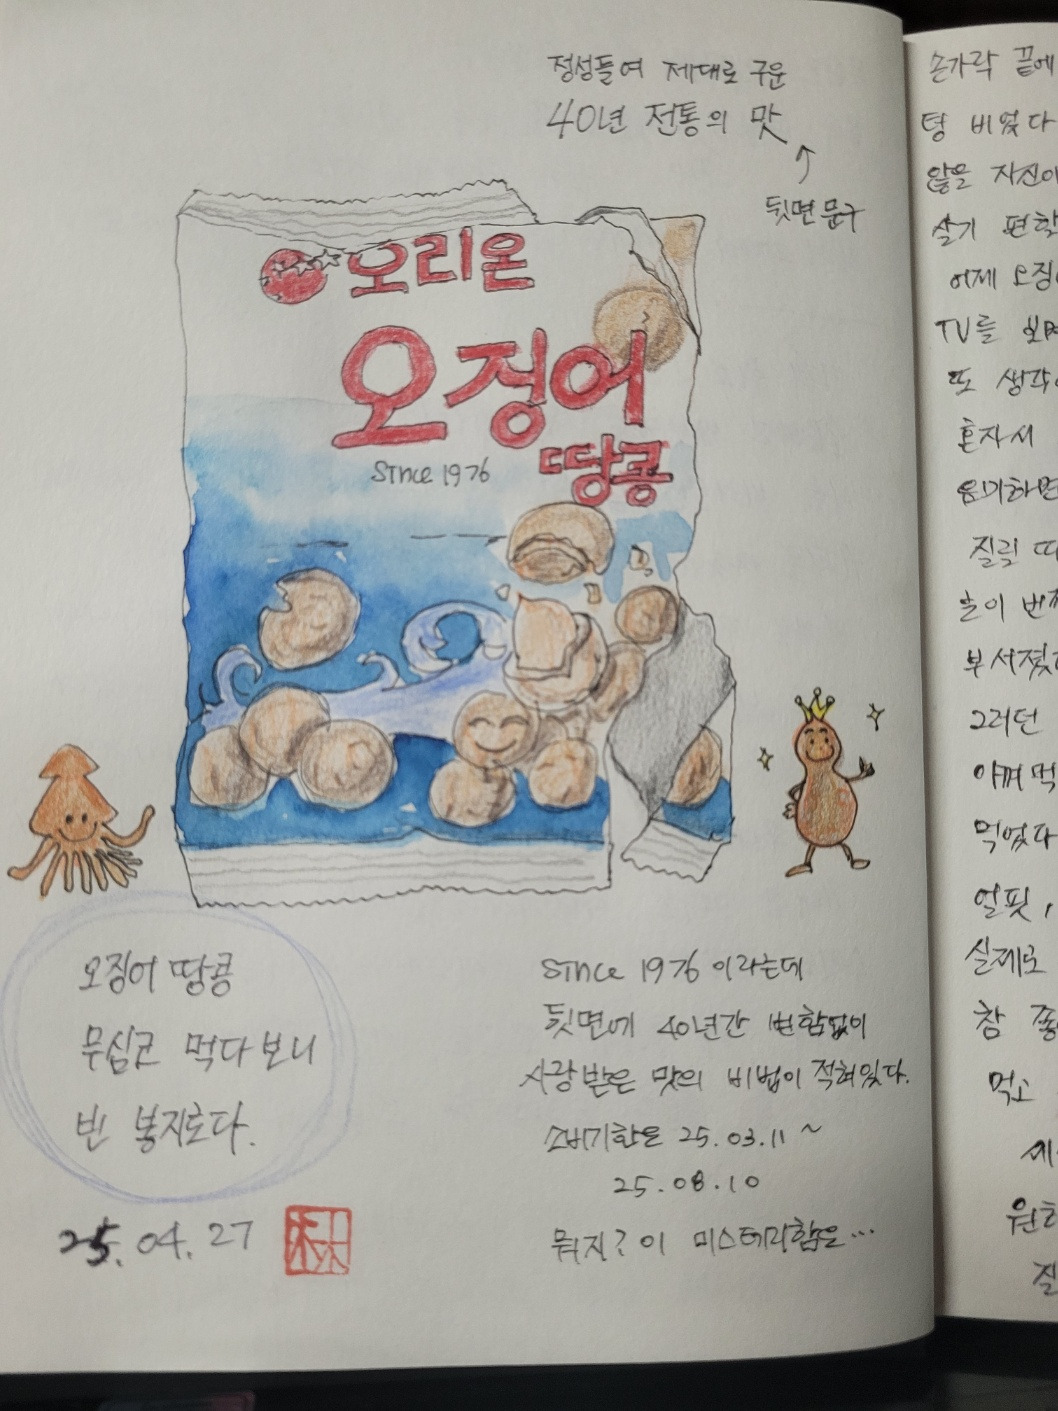 정성들여 제대로 구운
40년 전통의 맛
뒷면 문구
오리온
오징어
땅콩
Since 1976
오징어 땅콩
무심코 먹다보니
빈 봉지로다.
25. 04. 27
Since 1976 이라는데
뒷면에 40년간 변함없이
사랑받은 맛의 비법이 적혀있다.
소비기한은 25.03.11 ~
25.08.10
뭐지? 이 미스테리함은...
손가락 끝에
텅 비었다
않은 자신이
살기 편할
어제 오징어
TV를 보며
또 생각
혼자서
음미하면
질릴
부서졌
그러던
아껴먹
먹었다
얼핏,
실제로
참
먹고